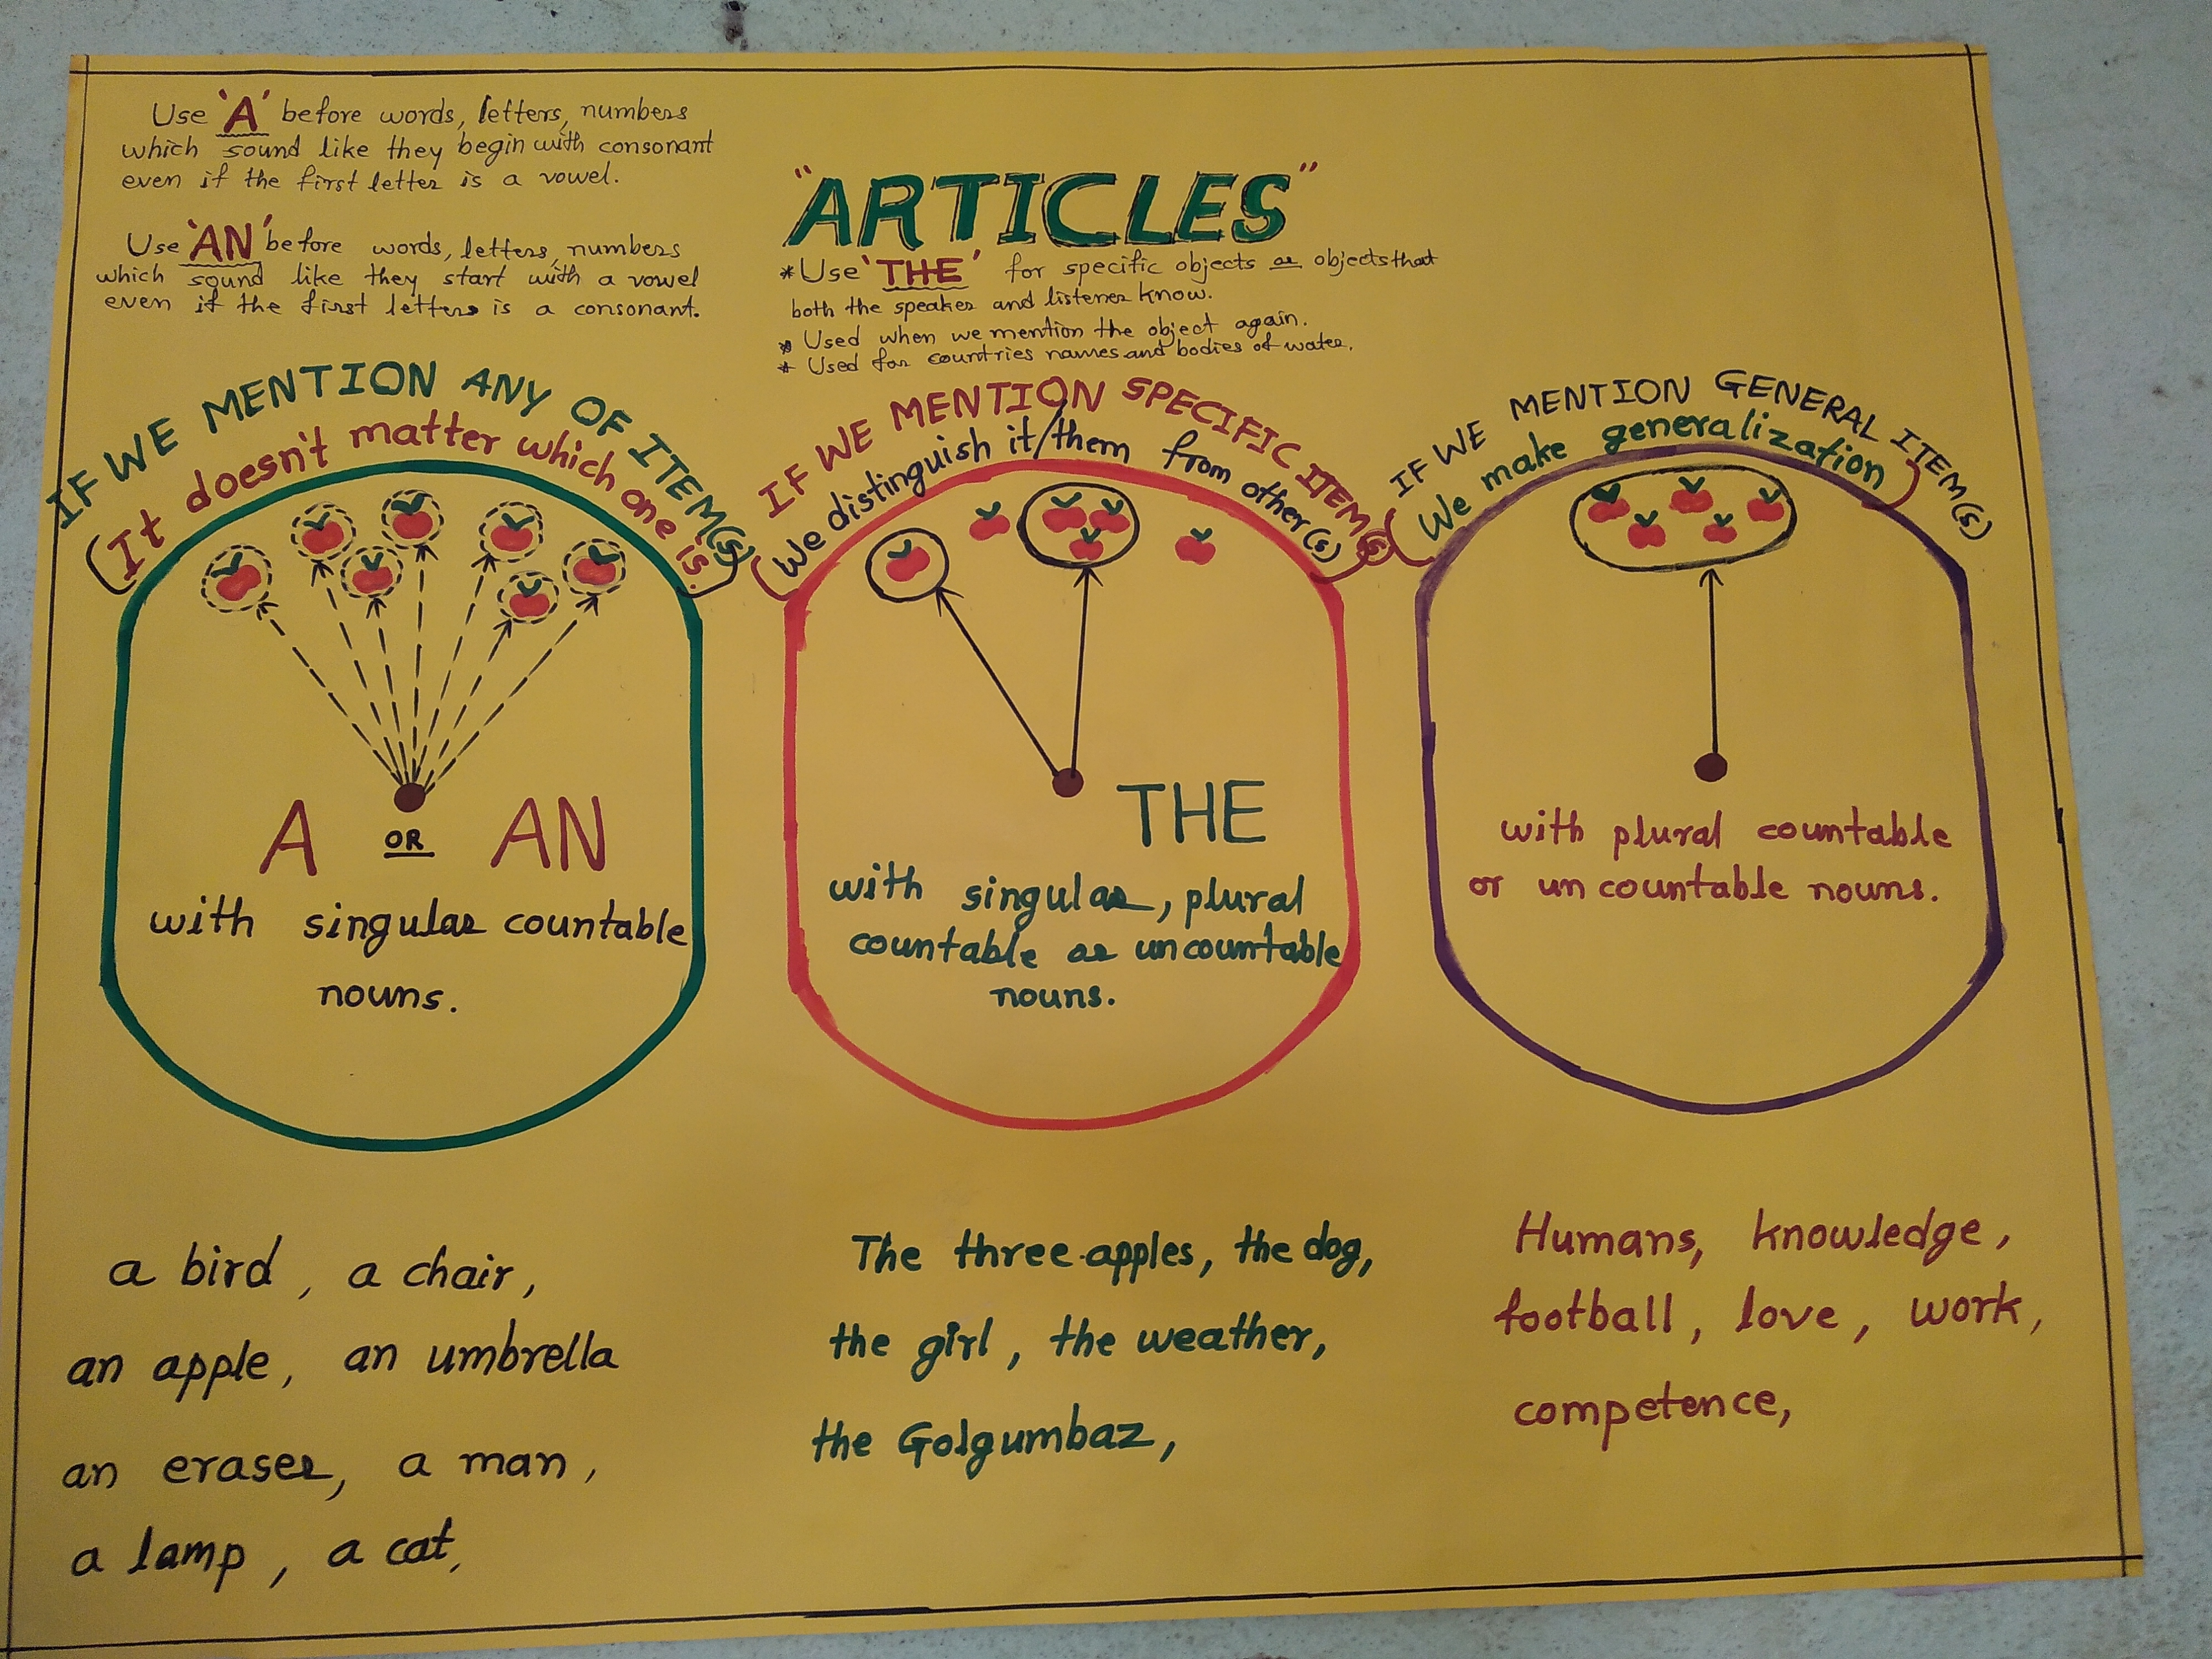 Use 'A' before words, letters, numbers
which sound like they begin with consonant
even if the first letter is a vowel.
Use 'AN' before words, letters, numbers
which sound like they start with a vowel
even if the first letters is a consonant.
"ARTICLES"
*Use 'THE' for specific objects or objects that
both the speaker and listener know.
* Used when we mention the object again.
* Used for countries names and bodies of water.
IF WE MENTION ANY OF ITEM(S)
(It doesn't matter which one is.)
A OR AN
with singular countable
nouns.
a bird, a chair,
an apple, an umbrella
an eraser, a man,
a lamp, a cat,
IF WE MENTION SPECIFIC ITEM(S)
(We distinguish it/them from other(s))
THE
with singular, plural
countable or uncountable
nouns.
The three apples, the dog,
the girl, the weather,
the Golgumbaz,
IF WE MENTION GENERAL ITEM(S)
(We make generalization)
with plural countable
or uncountable nouns.
Humans, knowledge,
football, love, work,
competence,